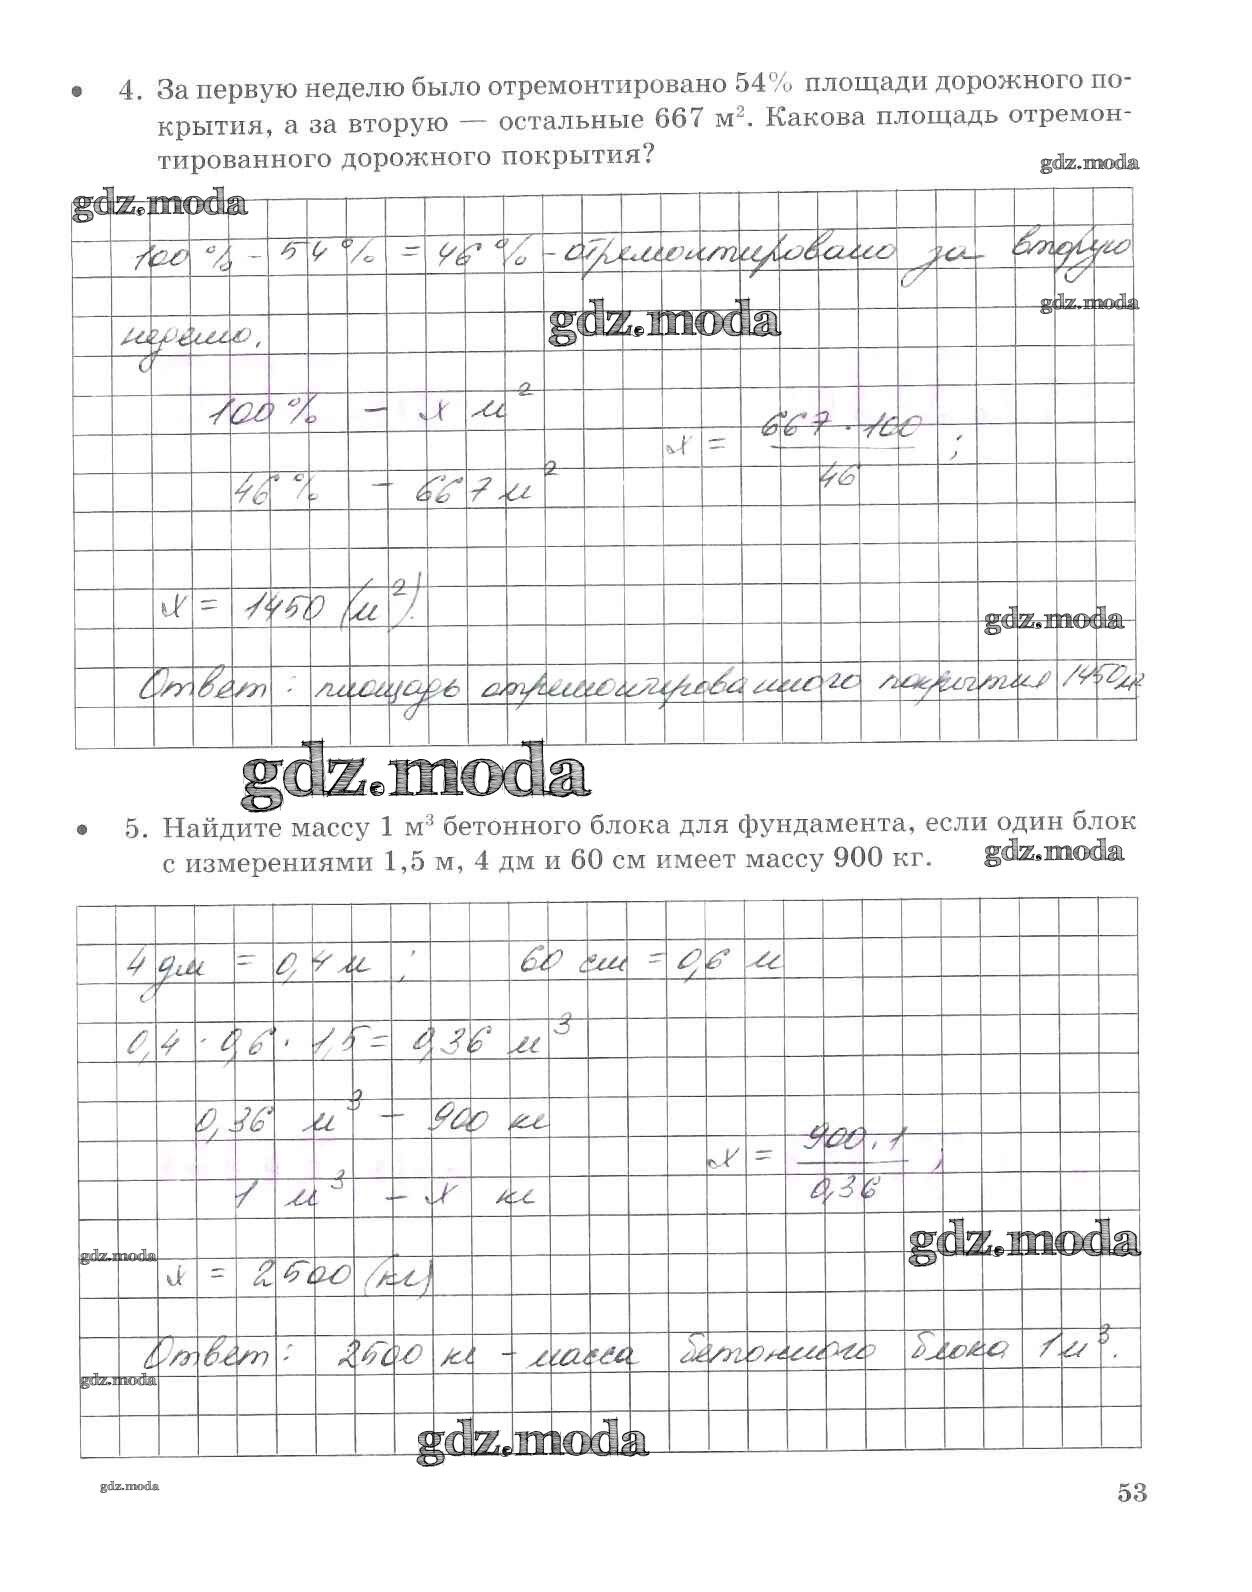 4. За первую неделю было отремонтировано 54% площади дорожного по-
крытия, а за вторую — остальные 667 м². Какова площадь отремон-
тированного дорожного покрытия?
gdz.moda
gdz.moda
100% - 54% = 46% - отремонтировано за вторую
gdz.moda
gdz.moda
неделю.
100% - x м²
x = 667 · 100 / 46 ;
46% - 667 м²
x = 1450 (м²).
gdz.moda
Ответ: площадь отремонтированного покрытия 1450 м²
gdz.moda
5. Найдите массу 1 м³ бетонного блока для фундамента, если один блок
с измерениями 1,5 м, 4 дм и 60 см имеет массу 900 кг.
gdz.moda
4 дм = 0,4 м ; 60 см = 0,6 м
0,4 · 0,6 · 1,5 = 0,36 м³
0,36 м³ - 900 кг
x = 900 · 1 / 0,36 ;
1 м³ - x кг
gdz.moda
gdz.moda
x = 2500 (кг)
Ответ: 2500 кг - масса бетонного блока 1 м³.
gdz.moda
gdz.moda
gdz.moda
53